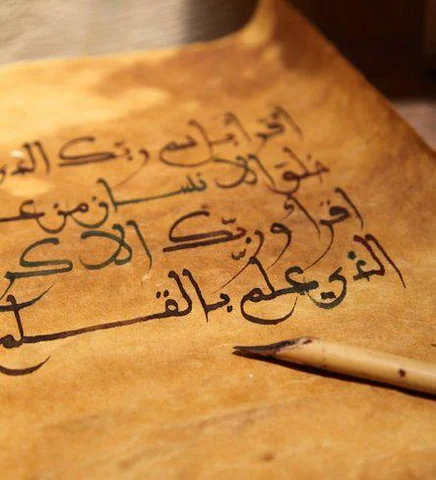 اقرأ باسم ربّك الذي
خلق الانسان من عـ
اقرأ وربّك الاكر
الذي علم بالقلم